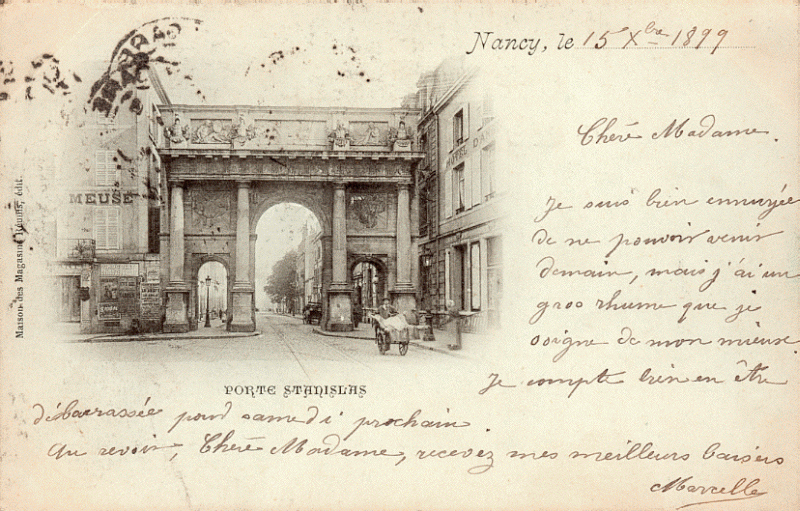 Nancy, le 15 Xbre 1899
Chère Madame.
Je suis bien ennuyée
de ne pouvoir venir
demain, mais j'ai un
gros rhume que je
soigne de mon mieux.
Je compte bien en être
débarrassée pour samedi prochain.
Au revoir, Chère Madame, recevez mes meilleurs baisers
Marcelle
PORTE STANISLAS
Maison des Magasins Réunis, édit.
MEUSE
HOTEL D